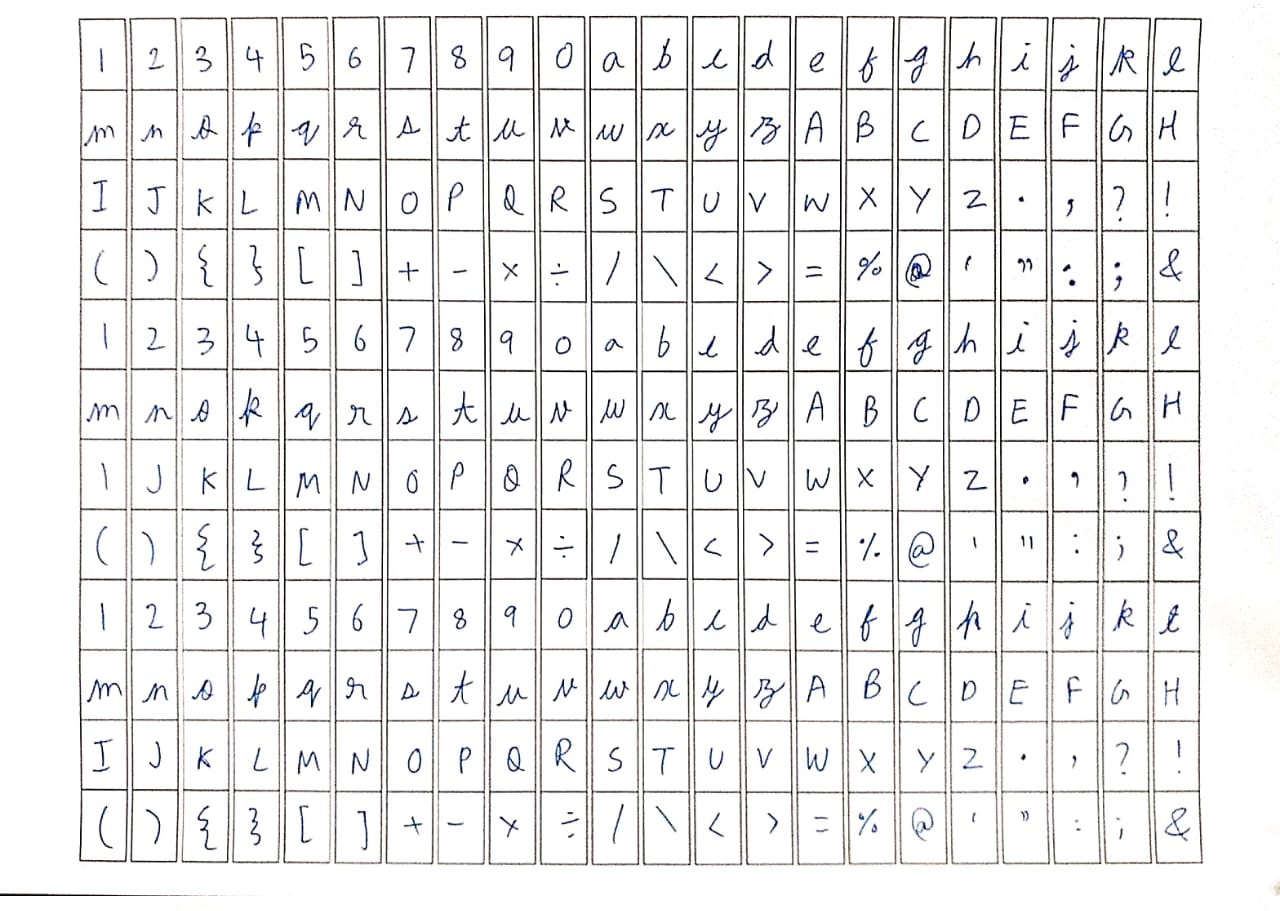 1 2 3 4 5 6 7 8 9 0 a b c d e f g h i j k l
m n o p q r s t u v w x y z A B C D E F G H
I J K L M N O P Q R S T U V W X Y Z . , ? !
( ) { } [ ] + - × ÷ / \ < > = % @ ' " : ; &
1 2 3 4 5 6 7 8 9 0 a b c d e f g h i j k l
m n o p q r s t u v w x y z A B C D E F G H
I J K L M N O P Q R S T U V W X Y Z . , ? !
( ) { } [ ] + - × ÷ / \ < > = % @ ' " : ; &
1 2 3 4 5 6 7 8 9 0 a b c d e f g h i j k l
m n o p q r s t u v w x y z A B C D E F G H
I J K L M N O P Q R S T U V W X Y Z . , ? !
( ) { } [ ] + - × ÷ / \ < > = % @ ' " : ; &